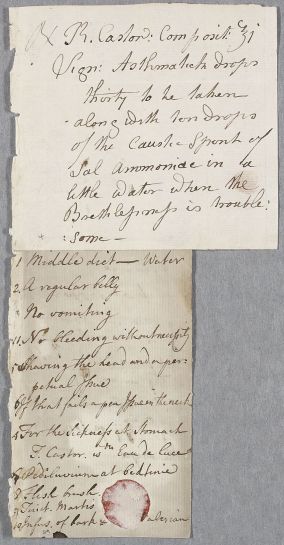 ℞ R. Castor: Composit: ℥i
Sign: Asthmatick drops
thirty to be taken
along with ten drops
of the Caustic Spirit of
Sal Ammoniac in a
little Water when the
Breathlessness is trouble:
:some —
1 Middle diet — Water
2. A regular belly
3 No vomiting
4 No bleeding without necessity
5 Shaving the head and a per-
petual Issue
6 If that fails a pea Issue in the neck
For the Sickness at Stomach
T. Castor. is wth Eau de Luce
Pediluvium at bedtime
8 Flesh brush
9 Tinct. Martis
10 Infus. of bark & Valerian